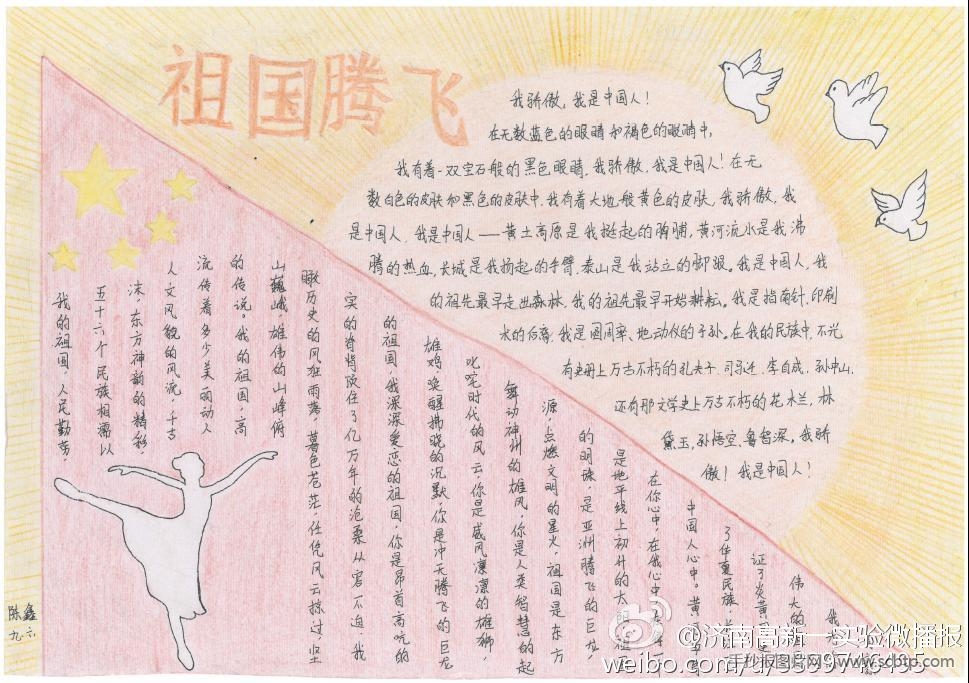 祖国腾飞
我骄傲,我是中国人!
在无数蓝色的眼睛和褐色的眼睛中,
我有着一双宝石般的黑色眼睛,我骄傲,我是中国人!在无
数白色的皮肤和黑色的皮肤中,我有着大地般黄色的皮肤,我骄傲,我
是中国人,我是中国人——黄土高原是我挺起的胸脯,黄河流水是我沸
腾的热血,长城是我扬起的手臂,泰山是我站立的脚跟。我是中国人,我
的祖先最早走出森林,我的祖先最早开始耕耘。我是指南针、印刷
术的后裔,我是圆周率、地动仪的子孙。在我的民族中,不光
有史册上万古不朽的孔夫子、司马迁、李自成、孙中山,
还有那文学史上万古不朽的花木兰,林
黛玉,孙悟空,鲁智深。我骄
傲!我是中国人!
我的祖国,人民勤劳,
五十六个民族相濡以
沫,东方神韵的精彩,
人文风貌的风流,千古
流传着多少美丽动人
的传说。我的祖国,高
山巍峨,雄伟的山峰俯
瞰历史的风狂雨落,暮色苍茫,任凭风云掠过,坚
实的脊背顶住了亿万年的沧桑从容不迫。我
的祖国,我深深爱恋的祖国,你是昂首高吭的
雄鸡,唤醒拂晓的沉默,你是冲天腾飞的巨龙
叱咤时代的风云,你是威风凛凛的雄狮,
舞动神州的雄风,你是人类智慧的起
源,点燃文明的星火。祖国是东方
的明珠,是亚洲腾飞的巨龙,
是地平线上初升的太
在你心中,在我心中
中国人心中。黄
了华夏民族,长
证了炎黄
伟大的
我
陈鑫
九.六
@济南高新一实验微播报
手抄报图片网©www.scbtp.com